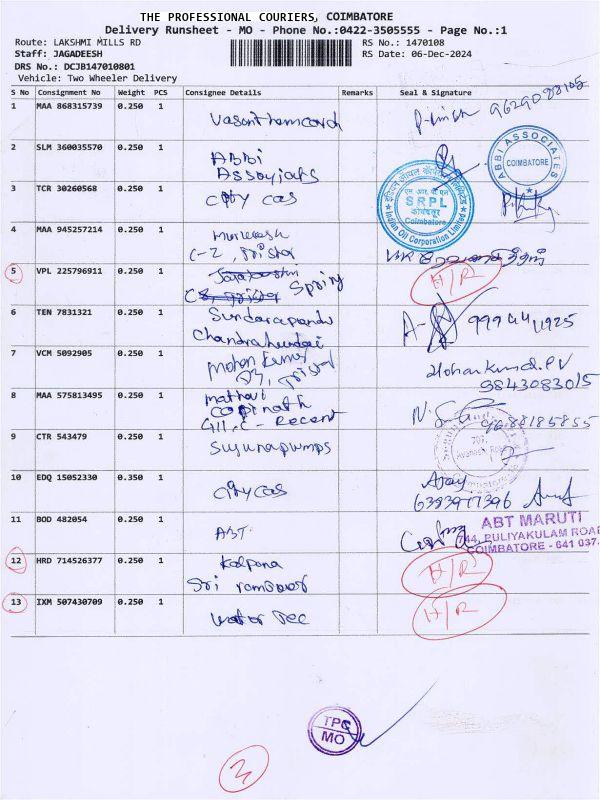 THE PROFESSIONAL COURIERS, COIMBATORE
Delivery Runsheet - MO - Phone No.:0422-3505555 - Page No.:1
Route: LAKSHMI MILLS RD
RS No.: 1470108
Staff: JAGADEESH
RS Date: 06-Dec-2024
DRS No.: DCJB147010801
Vehicle: Two Wheeler Delivery
S No Consignment No Weight PCS Consignee Details Remarks Seal & Signature
1 MAA 868315739 0.250 1
2 SLM 360035570 0.250 1 ABBI
ABBI ASSOCIATES
COIMBATORE
3 TCR 30260568 0.250 1 city cas
इंडियन ऑयल
S R P L
कोयंबतूर
Coimbatore
Indian Oil Corporation Limited
4 MAA 945257214 0.250 1
5 VPL 225796911 0.250 1 Spring H/R
6 TEN 7831321 0.250 1 Sundarapandi
7 VCM 5092905 0.250 1 Mohan Kumar
Mohankumar.PV
9843083015
8 MAA 575813495 0.250 1
Gopinath
9688185855
9 CTR 543479 0.250 1 Sugunapumps
10 EDQ 15052330 0.350 1 city cas Ajay
11 BOD 482054 0.250 1 ABT
ABT MARUTI
744, PULIYAKULAM ROAD
COIMBATORE - 641 037.
12 HRD 714526377 0.250 1 Kalpana H/R
Sri
13 IXM 507430709 0.250 1 water Tec H/R
TPC
MO
3